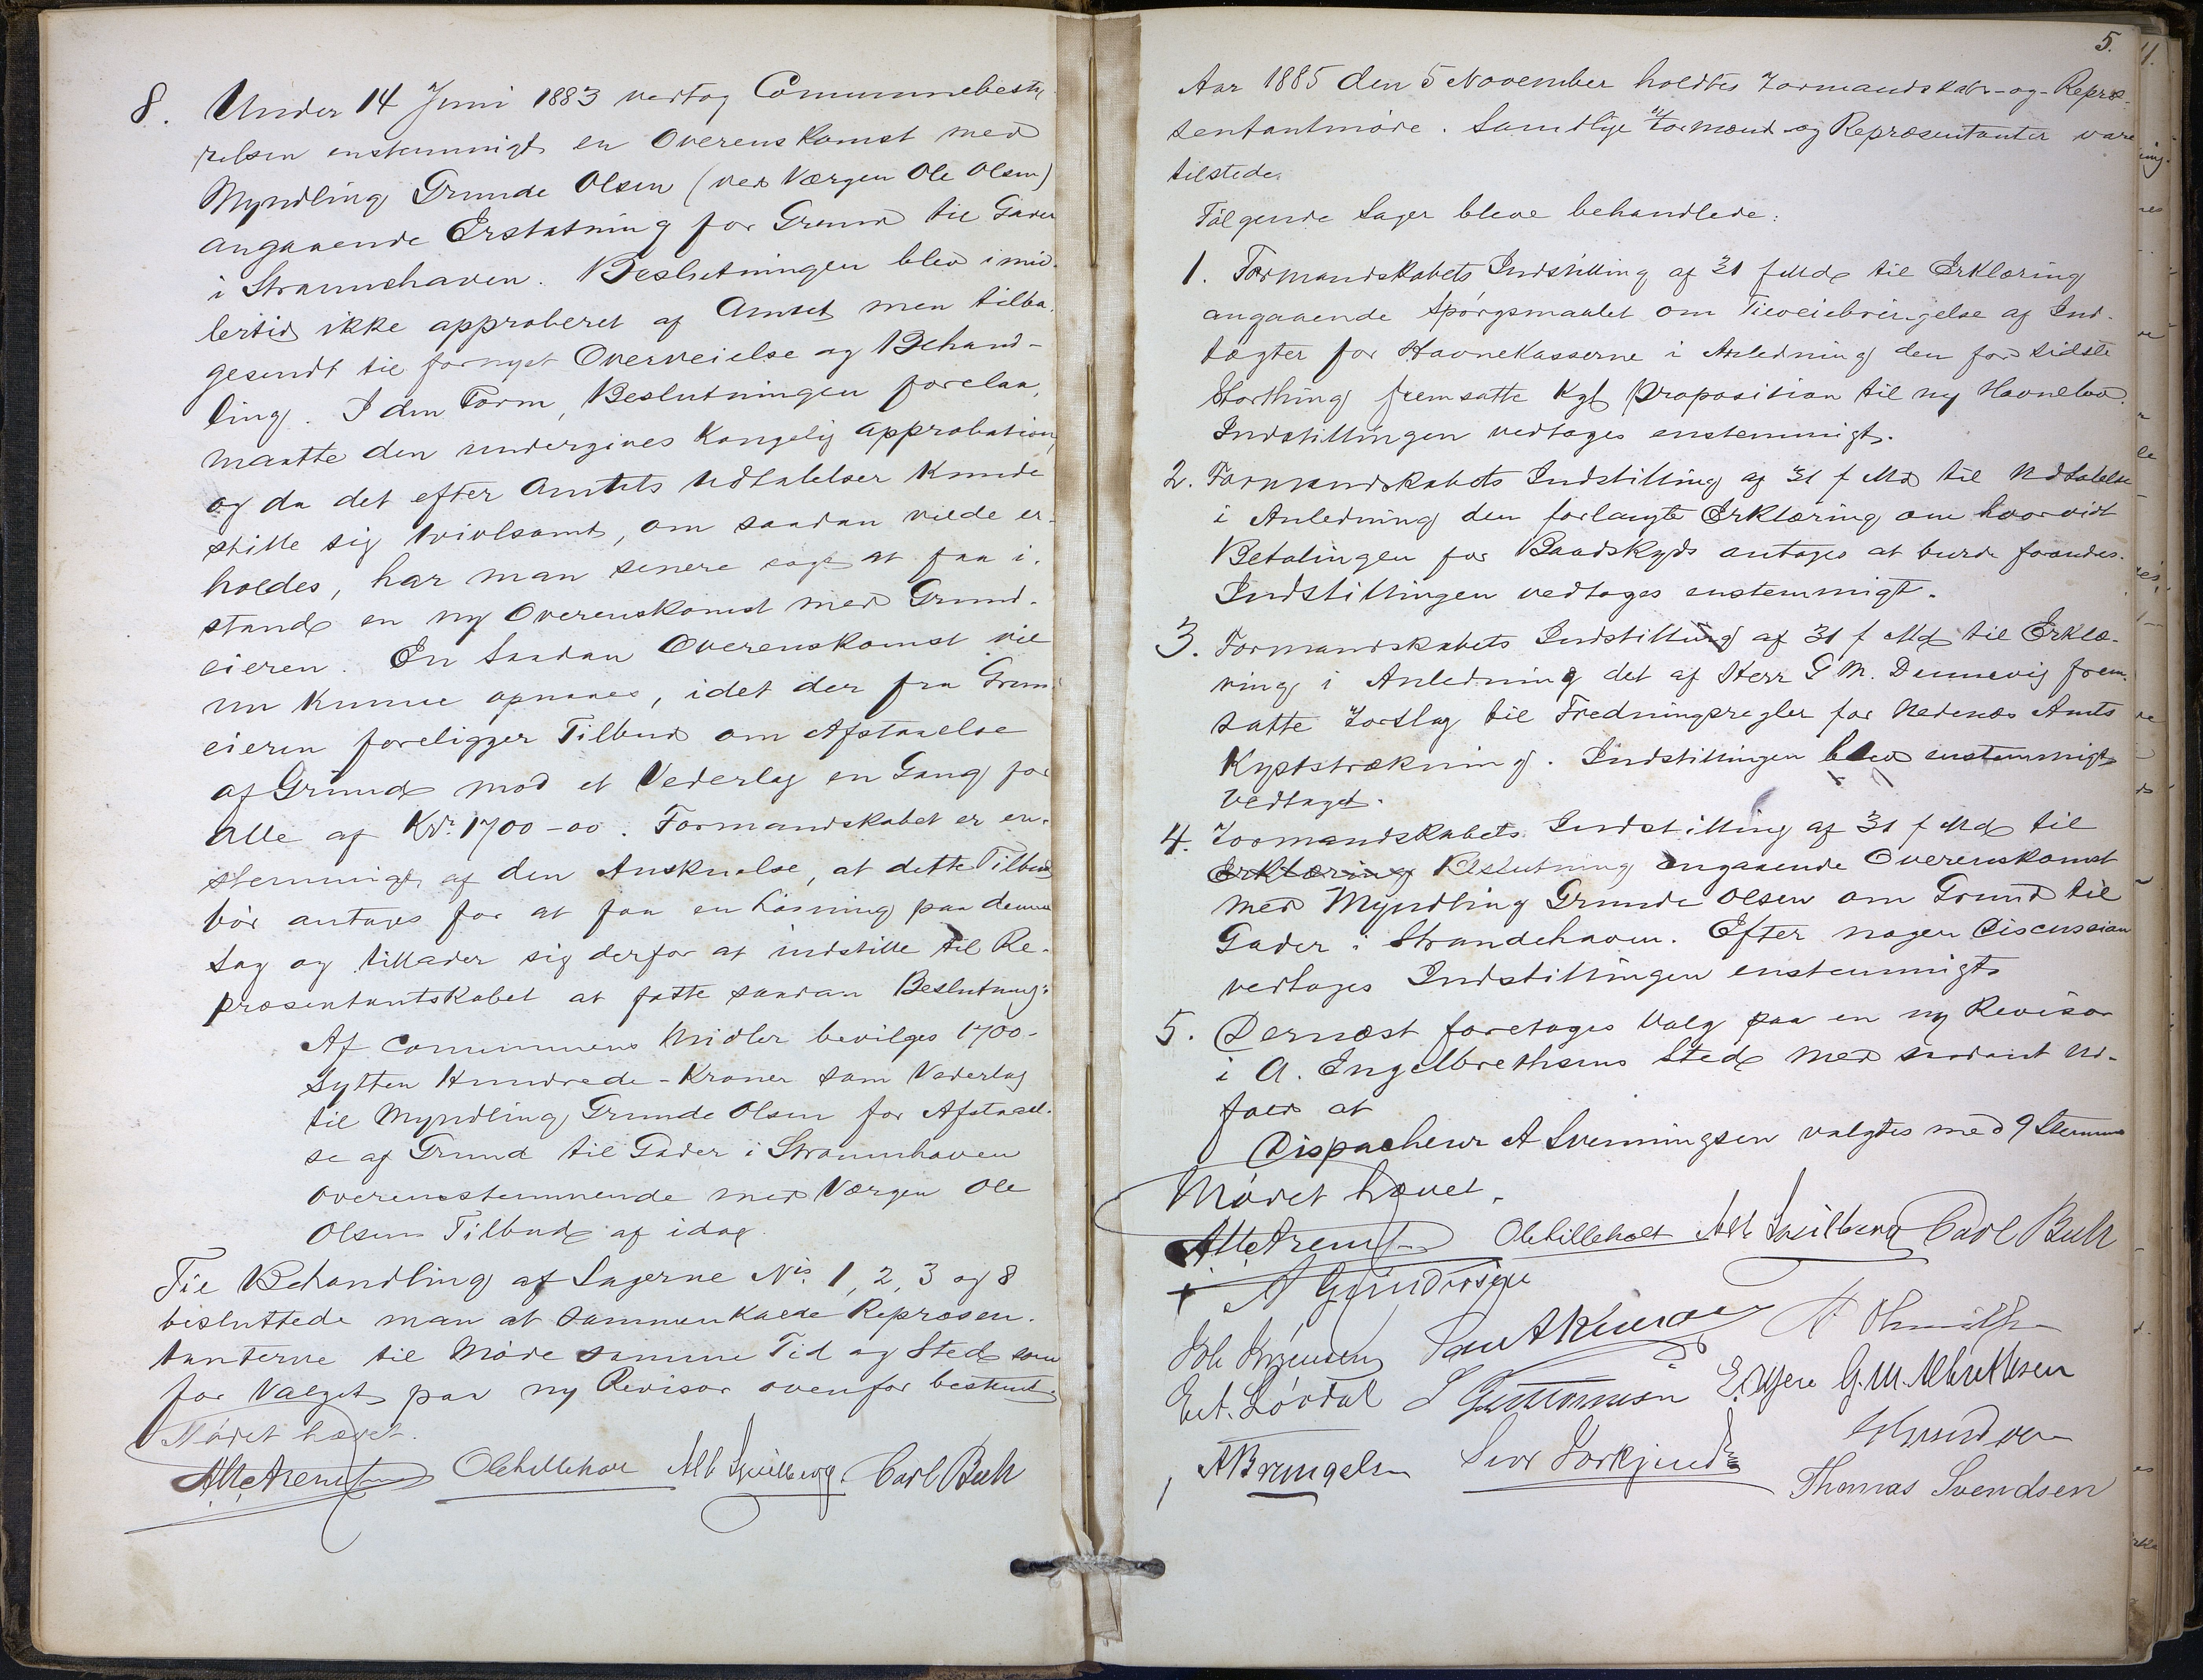 8. Under 14 Juni 1883 vedtog Communebesty
relsen enstemmigt en Overenskomst med
Myndling Grunde Olsen (ved Værgen Ole Olsen)
angaaende Erstatning for Grund til Gader
i Strannehaven. Beslutningen blev imid-
lertid ikke approberet af Amtet men tilba-
gesendt til fornyet Overveielse og Behand-
ling. I den Form, Beslutningen forelaa,
maatte den undergives Kongelig Approbation,
og da det efter Amtets Udtalelser Kunde
stille sig tvivlsomt, om saadan vilde er-
holdes, har man senere søgt at faa i-
stand en ny Overenskomst med Grund-
eieren. En saadan Overenskomst vil
nu kunne opnaaes, idet der fra Grund-
eieren foreligger Tilbud om Afstaaelse
af Grund mod et Vederlag en Gang for
Alle af Kr. 1700-00. Formandskabet er en-
stemmigt af den Anskuelse, at dette Tilbud
bör antages for at faa en Løsning paa denne
Sag og tillader sig derfor at indstille til Re-
præsentantskabet at fatte saadan Beslutning:
Af Communens Midler bevilges 1700-
Sytten Hundrede-Kroner som Vederlag
til Myndling Grunde Olsen for Afstaael-
se af Grund til Gader i Strannhaven
overensstemmende med Værgen Ole
Olsens Tilbud af idag.
Til Behandling af Sagerne No. 1, 2, 3 og 8
besluttede man at sammenkalde Repræsen-
tanterne til Møde samme Tid og Sted som
for Valget paa ny Revisor ovenfor bestemt.
Mödet hævet.
Ole Lilleholt Carl Buch
5.
Aar 1885 den 5 November holdtes Formandskabs-og-Repræ-
sentantmøde. Samtlige Formænd og Repræsentanter vare
tilstede.
Følgende Sager bleve behandlede:
1. Formandskabets Indstilling af 31 f Md til Erklæring
angaaende Spörgsmaalet om Tilveiebringelse af Ind-
tægter for Havnekasserne i Anledning den for sidste
Storthing fremsatte Kgl Proposition til ny Havnelov.
Indstillingen vedtoges enstemmigt.
2. Formandskabets Indstilling af 31 f Md til Udtalelse
i Anledning den forlangte Erklæring om hvorvidt
Betalingen for Baadskyds antages at burde forandres.
Indstillingen vedtoges enstemmigt.
3. Formandskabets Indstilling af 31 f Md til Erklæ-
ring i Anledning det af Herr G M. Dannevig frem-
satte Forslag til Fredningsregler for Nedenæs Amts
Kyststrækning. Indstillingen blev enstemmigt
vedtaget.
4. Formandskabets Indstilling af 31 f Md til
Erklæring Beslutning angaaende Overenskomst
med Myndling Grunde Olsen om Grund til
Gader i Strandehaven. Efter nogen Discussion
vedtoges Indstillingen enstemmigt
5. Dernæst foretoges Valg paa en ny Revisor
i A. Engelbrethsens Sted med saadant Ud-
fald at
Dispacheur A Svenningsen valgtes med 9 Stemmer
Mödet hævet.
Ole Lilleholt Carl Buch
A Gundersen
S Guttormsen G. M. Albrethsen
Thomas Svendsen